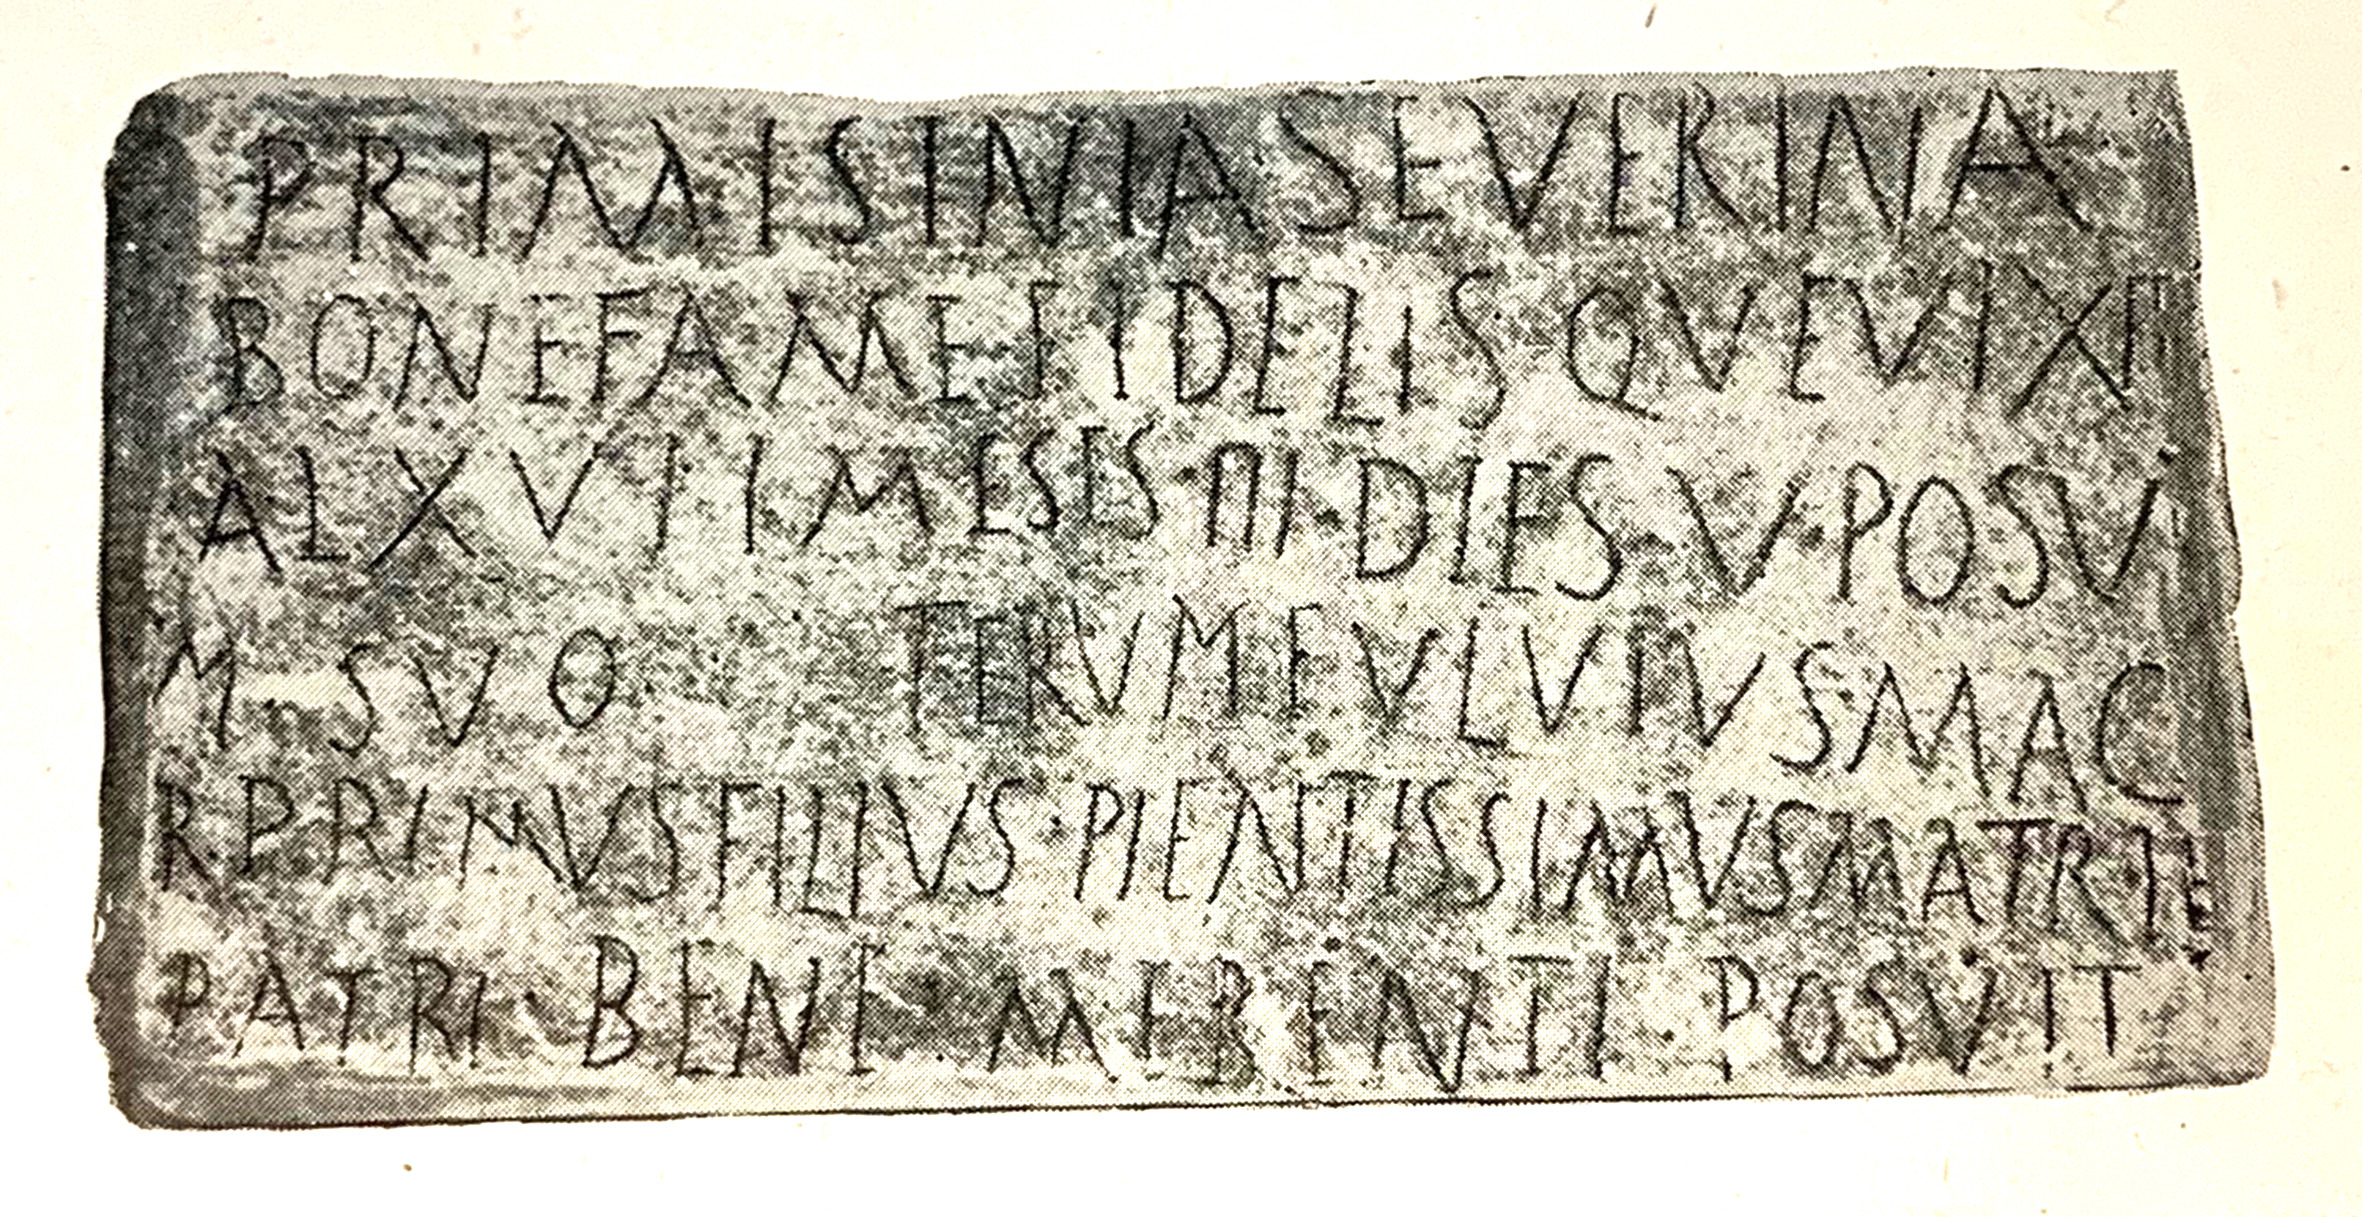 PRIMISINIASEVERINA
BONEFAMEFIDELISQVEVIXIT
ALXVIIMESESIIIDIESV·POSVI
MSVO TERVMFVLVIVSMAC
RPRIMVSFILIVS·PIENTISSIMVSMATRIE
PATRI·BENE MERENTI POSVIT